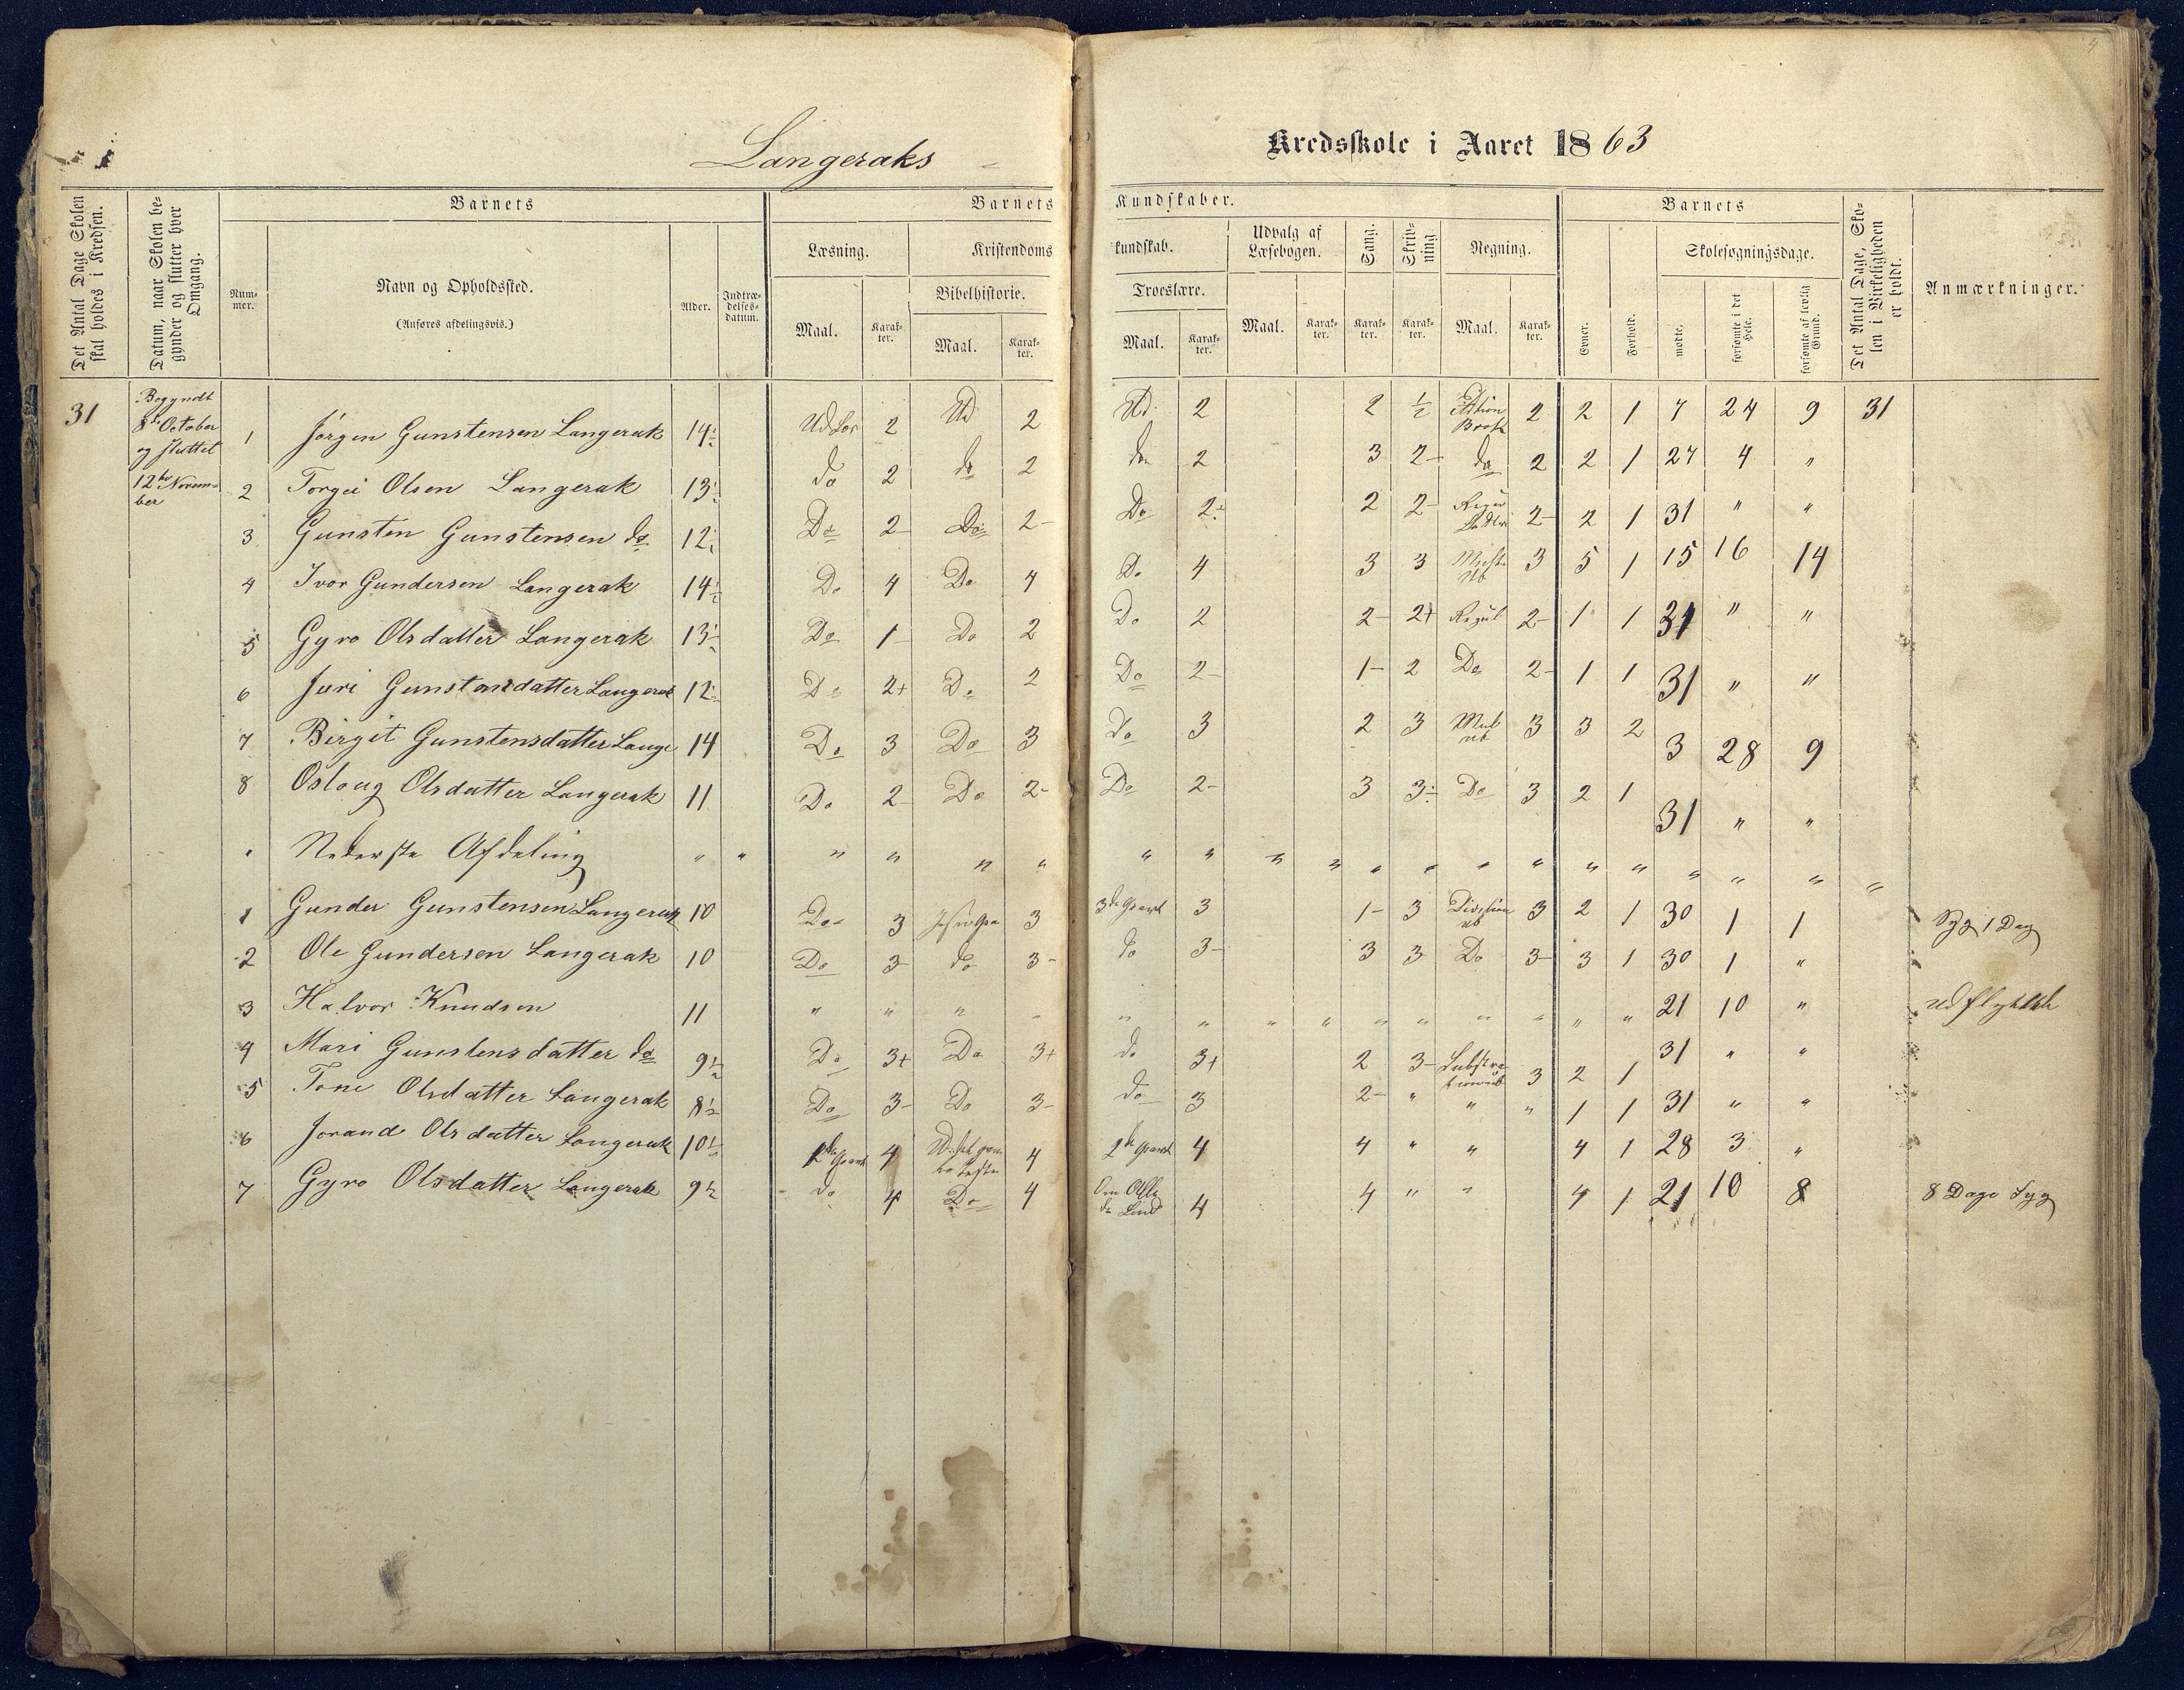 Langeraks Kredsskole i Aaret 1863
Det Antal Dage Skolen skal holdes i Kredsen.
Datum, naar Skolen begynder og slutter hver Omgang.
Barnets
Nummer.
Navn og Opholdssted.
(Anføres afdelingsvis.)
Alder.
Indtrædelsesdatum.
Barnets Kundskaber.
Læsning.
Maal. Karakter.
Kristendomskundskab.
Bibelhistorie.
Maal. Karakter.
Troeslære.
Maal. Karakter.
Udvalg af Læsebogen.
Maal. Karakter.
Sang.
Karakter.
Skrivning.
Karakter.
Regning.
Maal. Karakter.
Barnets
Evner.
Forhold.
Skolesøgningsdage.
mødte.
forsømte i det Hele.
forsømte af lovlig Grund.
Det Antal Dage, Skolen i Virkeligheden er holdt.
Anmærkninger.
31
Begyndt
8de October
og sluttet
12te Novem-
ber
1 Jörgen Gunstensen Langerak 14½ 2 Ud 2 Ud. 2 2 ½ Brøk 2 2 1 7 24 9 31
2 Torgei Olsen Langerak 13½ do 2 do 2 do 2 3 2- do 2 2 1 27 4 "
3 Gunsten Gunstensen do 12½ Do 2- Do 2- Do 2- 2 2- 2- 2 1 31 " "
4 Ivor Gundersen Langerak 14½ Do 4 Do 4 Do 4 3 3 3 5 1 15 16 14
5 Gyro Olsdatter Langerak 13½ Do 1- Do 2 Do 2 2- 2+ Regul 2- 1 1 31 " "
6 Juri Gunstensdatter Langerak 12½ Do 2+ Do 2 Do 2- 1- 2 Do 2- 1 1 31 " "
7 Birgit Gunstensdatter Lange 14 Do 3 Do 3 Do 3 2 3 Mul ub 3 3 2 3 28 9
8 Oslaug Olsdatter Langerak 11 Do 2- Do 2- Do 2- 3 3- Do 3 2 1 31 " "
" Nederste Afdeling " " " " " " " " " " " " " " " " " " " "
1 Gunder Gunstensen Langerak 10 Do 3 3 3die Part 3 1- 3 Division ub 3 2 1 30 1 1 Syg 1 Dag
2 Ole Gundersen Langerak 10 Do 3- do 3- do 3- 3 3- Do 3- 3 1 30 1 "
3 Halvor Knudsen 11 " " " " " " " " " " " " " " 21 10 " udflyttet
4 Mari Gunstensdatter do 9½ Do 3+ Do 3+ do 3+ 2 3- 3 2 1 31 " "
5 Tone Olsdatter Langerak 8½ Do 3- Do 3- do 3 2- " " " 1 1 31 " "
6 Jorand Olsdatter Langerak 10½ 4 4 2de Part 4 4 " " 4 1 28 3 "
7 Gyro Olsdatter Langerak 9½ do 4 Do 4 4 4 " " 4 1 21 10 8 8 Dage Syg